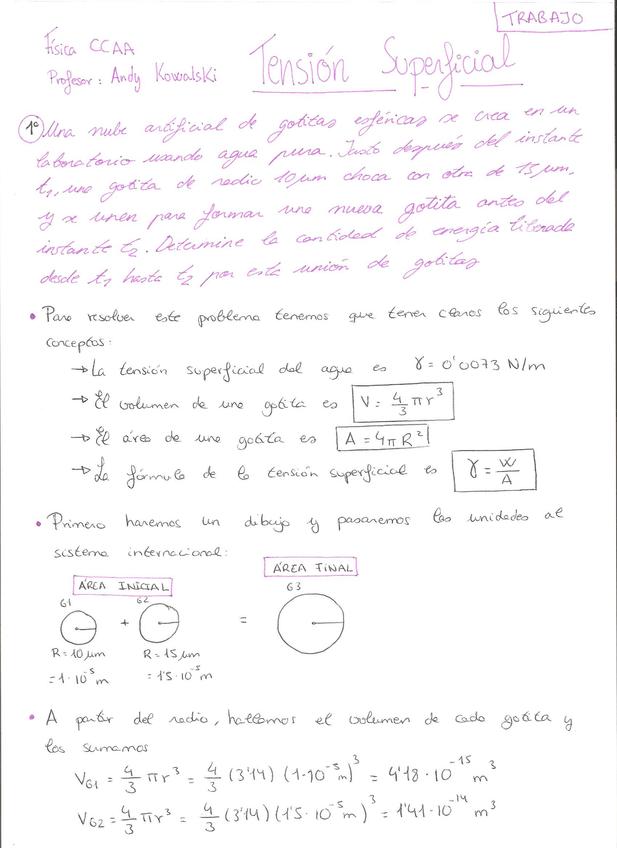 TRABAJO
Física CCAA
Profesor: Andy Kowalski
Tensión Superficial
1º Una nube artificial de gotitas esféricas se crea en un
laboratorio usando agua pura. Justo después del instante
t₁, una gotita de radio 10 μm choca con otra de 15 μm,
y se unen para formar una nueva gotita antes del
instante t₂. Determine la cantidad de energía liberada
desde t₁ hasta t₂ por esta unión de gotitas
• Para resolver este problema tenemos que tener claros los siguientes
conceptos:
→ La tensión superficial del agua es γ = 0'0073 N/m
→ El volumen de una gotita es V = 4/3 π r³
→ El área de una gotita es A = 4π R²
→ La fórmula de la tensión superficial es γ = W/A
• Primero haremos un dibujo y pasaremos las unidades al
sistema internacional:
ÁREA INICIAL
ÁREA FINAL
G1 G2 G3
+ =
R = 10 μm R = 15 μm
= 1·10⁻⁵ m = 1'5·10⁻⁵ m
• A partir del radio, hallamos el volumen de cada gotita y
los sumamos
V_G1 = 4/3 π r³ = 4/3 (3'14) (1·10⁻⁵ m)³ = 4'18·10⁻¹⁵ m³
V_G2 = 4/3 π r³ = 4/3 (3'14) (1'5·10⁻⁵ m)³ = 1'41·10⁻¹⁴ m³